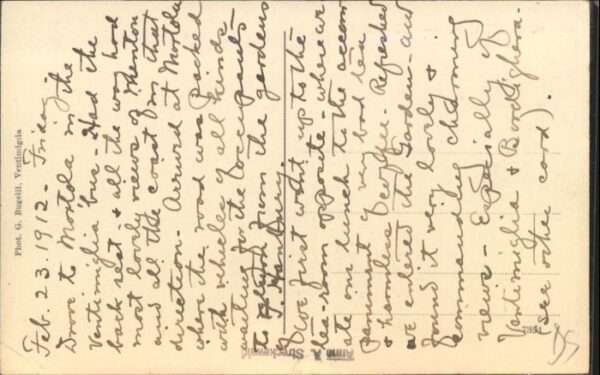 Feb. 23. 1912. Friday.
Drove to Mortola in the
Ventimiglia 'bus - Had the
back seat - & all the way had
most lovely views of Menton
and all the coast in that
direction - Arrived at Mortola
where the road was packed
with vehicles of all kinds
waiting for the occupants
to return from the gardens
of T. Hanbury.
We first went up to the
tea-room opposite - where we
ate our lunch to the accom
paniment of very bad tea
& harmless Refreshed
we entered the Garden - and
found it very lovely &
commanding charming
views - Especially of
Ventimiglia & Bordighera.
(See other card).
Phot. G. Bugelli, Ventimiglia
Anna A.
DS